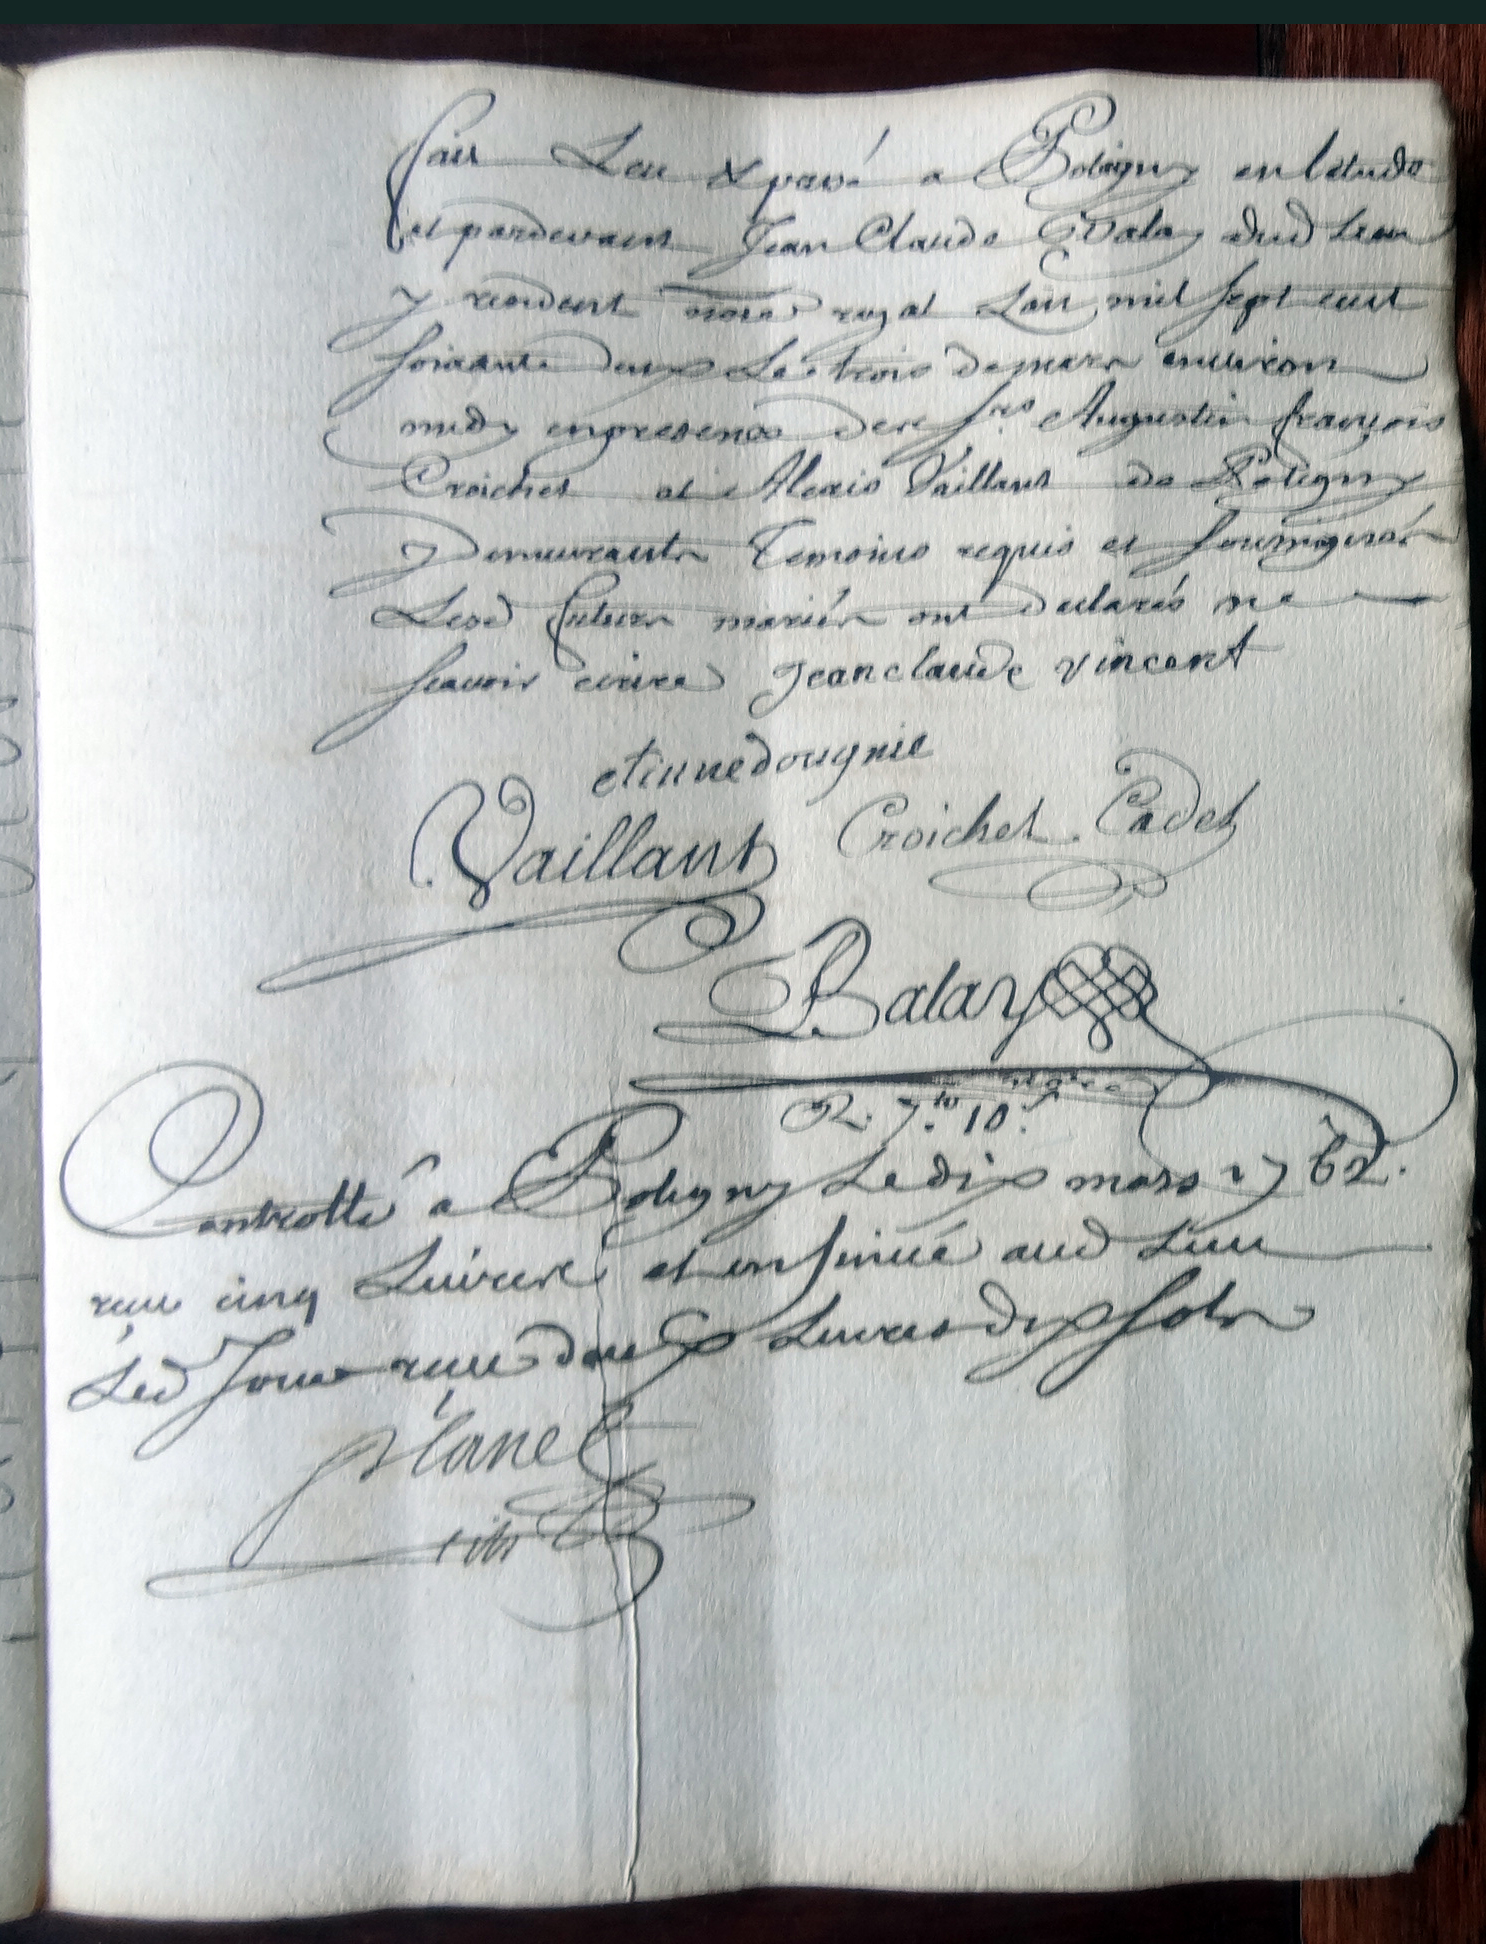 fait Leu & passé a Poligny en letude
et pardevant Jean Claude Balay dud Lieu
y residant nore royal Lan mil sept cent
soixante deux Le trois de mars environ
midy en presence des srs Augustin françois
Croichet et Alexis Vaillant de Poligny
y Demeurants Temoins requis et soussignés
Lesd futurs mariés ont declarés ne
scavoir ecrire Jean claude vincent
etienne dougnie
Vaillant Croichet Cadet
Balay
R. 7.lt 10.s
Controllé a Poligny Le dix mars 1762.
reçu cinq Livres et insinué aud Lieu
Led Jour reçu deux Livres dix sols